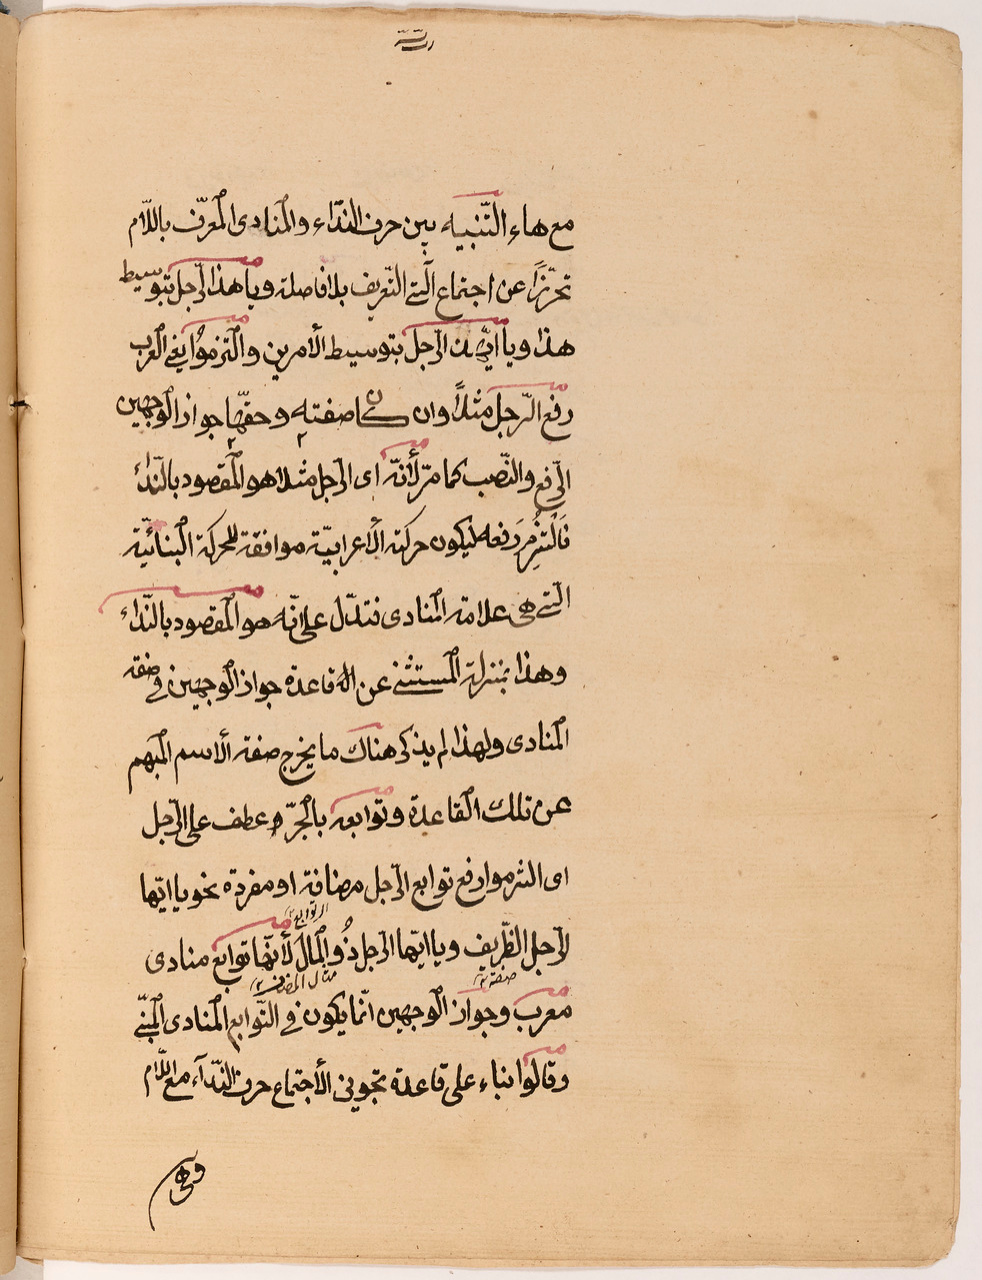 مع هاء التّنبيه بين حرف النّداء والمنادى المعرّف باللّام
تحرّزًا عن اجتماع آلتي التّعريف بلا فاصلة ويا هذا الرّجل بتوسيط
هذا ويا ايّهذا الرّجل بتوسيط الأمرين والتزموا يغي العرب
رفع الرّجل مثلاً وان كان صفته وحقّها جواز الوجهين
الرّفع والنّصب كما مرّ لأنّه اى الرّجل مثلا هو المقصود بالنّداء
فالتُزِمَ رَفعه ليكون حركته الأعرابيّة موافقة للحركة البنائيّة
الّتي هى علامة المنادى فتدّل على انّه هو المقصود بالنّداء
وهذا بمنزلة المستثنى عن القاعدة جواز الوجهين في صفة
المنادى ولهذا لم يذكر هناك ما يخرج صفة الاسم المبهم
عن تلك القاعدة وتوابعه بالجرّ عطف على الرّجل
اى التزموا رفع توابع الرّجل مضافة او مفردة نحو يا ايّها
الرّجل الظّريف ويا ايّها الرّجل ذُو المال لأنّها توابع منادى
اى توابع
صفة
مثال المضاف
معرب وجواز الوجهين انّما يكون في التّوابع المنادى المبنّى
وقالوا بناء على قاعدة تجويز الأجتماع حرف النّدآء مع اللّام
وهى